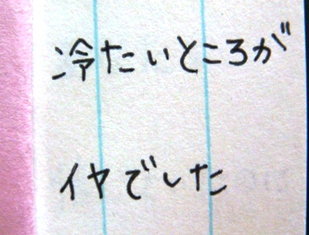 冷たいところが
イヤでした